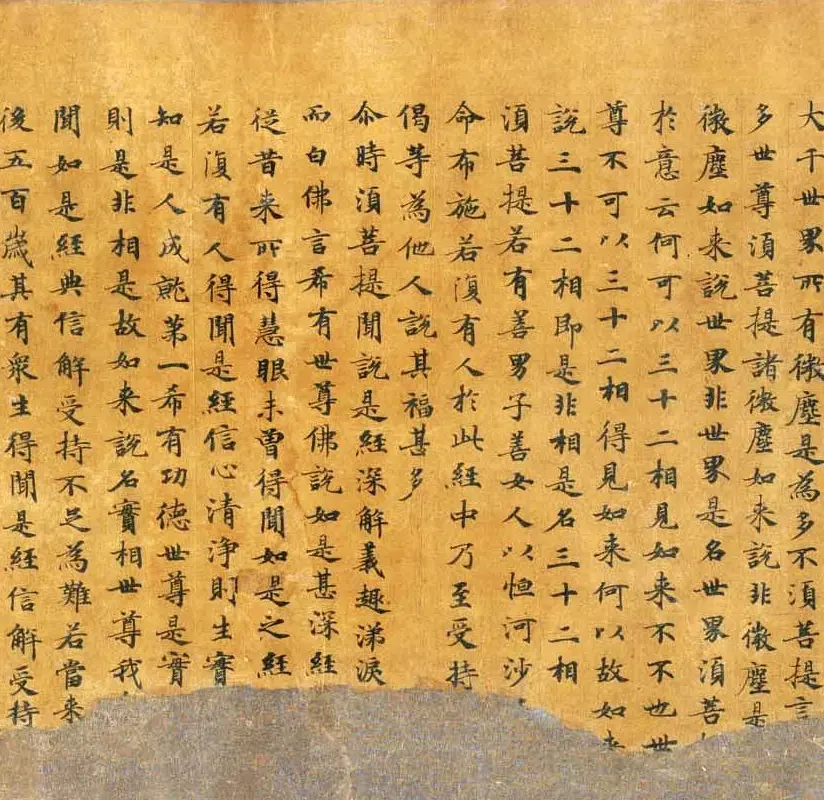 大千世界所有微塵是為多不須菩提言
多世尊須菩提諸微塵如来說非微塵是
微塵如来說世界非世界是名世界須菩
於意云何可以三十二相見如来不不也世
尊不可以三十二相得見如来何以故如来
說三十二相即是非相是名三十二相
須菩提若有善男子善女人以恒河沙
命布施若復有人於此經中乃至受持
偈等為他人說其福甚多
尒時須菩提聞說是經深解義趣涕淚
而白佛言希有世尊佛說如是甚深經
従昔来所得慧眼未曾得聞如是之經
若復有人得聞是經信心清淨則生實
知是人成就第一希有功德世尊是實
則是非相是故如来說名實相世尊我
聞如是經典信解受持不足為難若當来
後五百歲其有眾生得聞是經信解受持